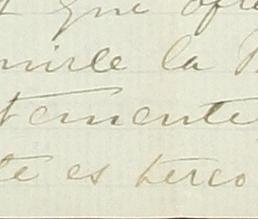 que ofre
mirle la
temente
te es terco